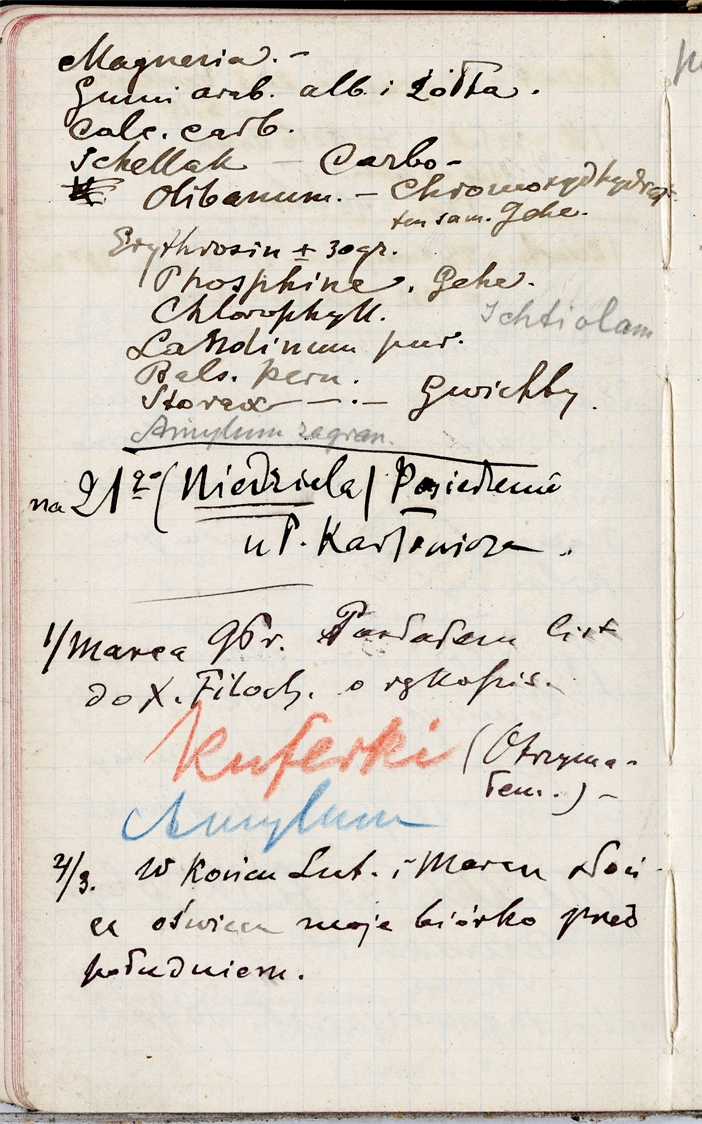 Magnesia. -
Gumi arab. alb. i żółta.
Calc. carb.
Schellak — Carbo -
Olibanum. — Chromoxydhydrat
ten sam. Gehe.
Erythrosin ± 30 gr.
Phosphine. Gehe.
Chlorophyll.
Ichtiolam
Laudinum pur.
Bals. peru.
Storax — . — Gwichby.
Amylum zagran.
na 21go (Niedziela) Posiedzenie
u P. Karłowicza.
1/ Marca 96r. Posłałem list
do X. Filoch. o rękopis.
Kuferki (Otrzyma-
łem.) -
Amylum
2/3. W końcu Lut. i Marcu słoń-
ce oświeca moje biórko przed
południem.